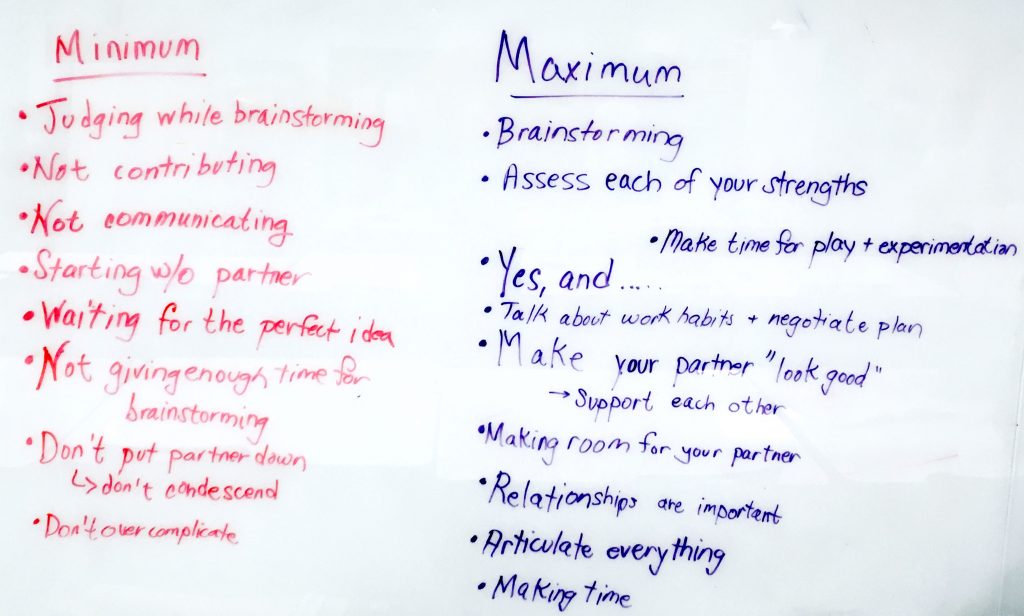 Minimum
• Judging while brainstorming
• Not contributing
• Not communicating
• Starting w/o partner
• Waiting for the perfect idea
• Not giving enough time for
brainstorming
• Don't put partner down
↳ don't condescend
• Don't over complicate
Maximum
• Brainstorming
• Assess each of your strengths
• Make time for play + experimentation
• Yes, and.....
• Talk about work habits + negotiate plan
• Make your partner "look good"
→ Support each other
• Making room for your partner
• Relationships are important
• Articulate everything
• Making time